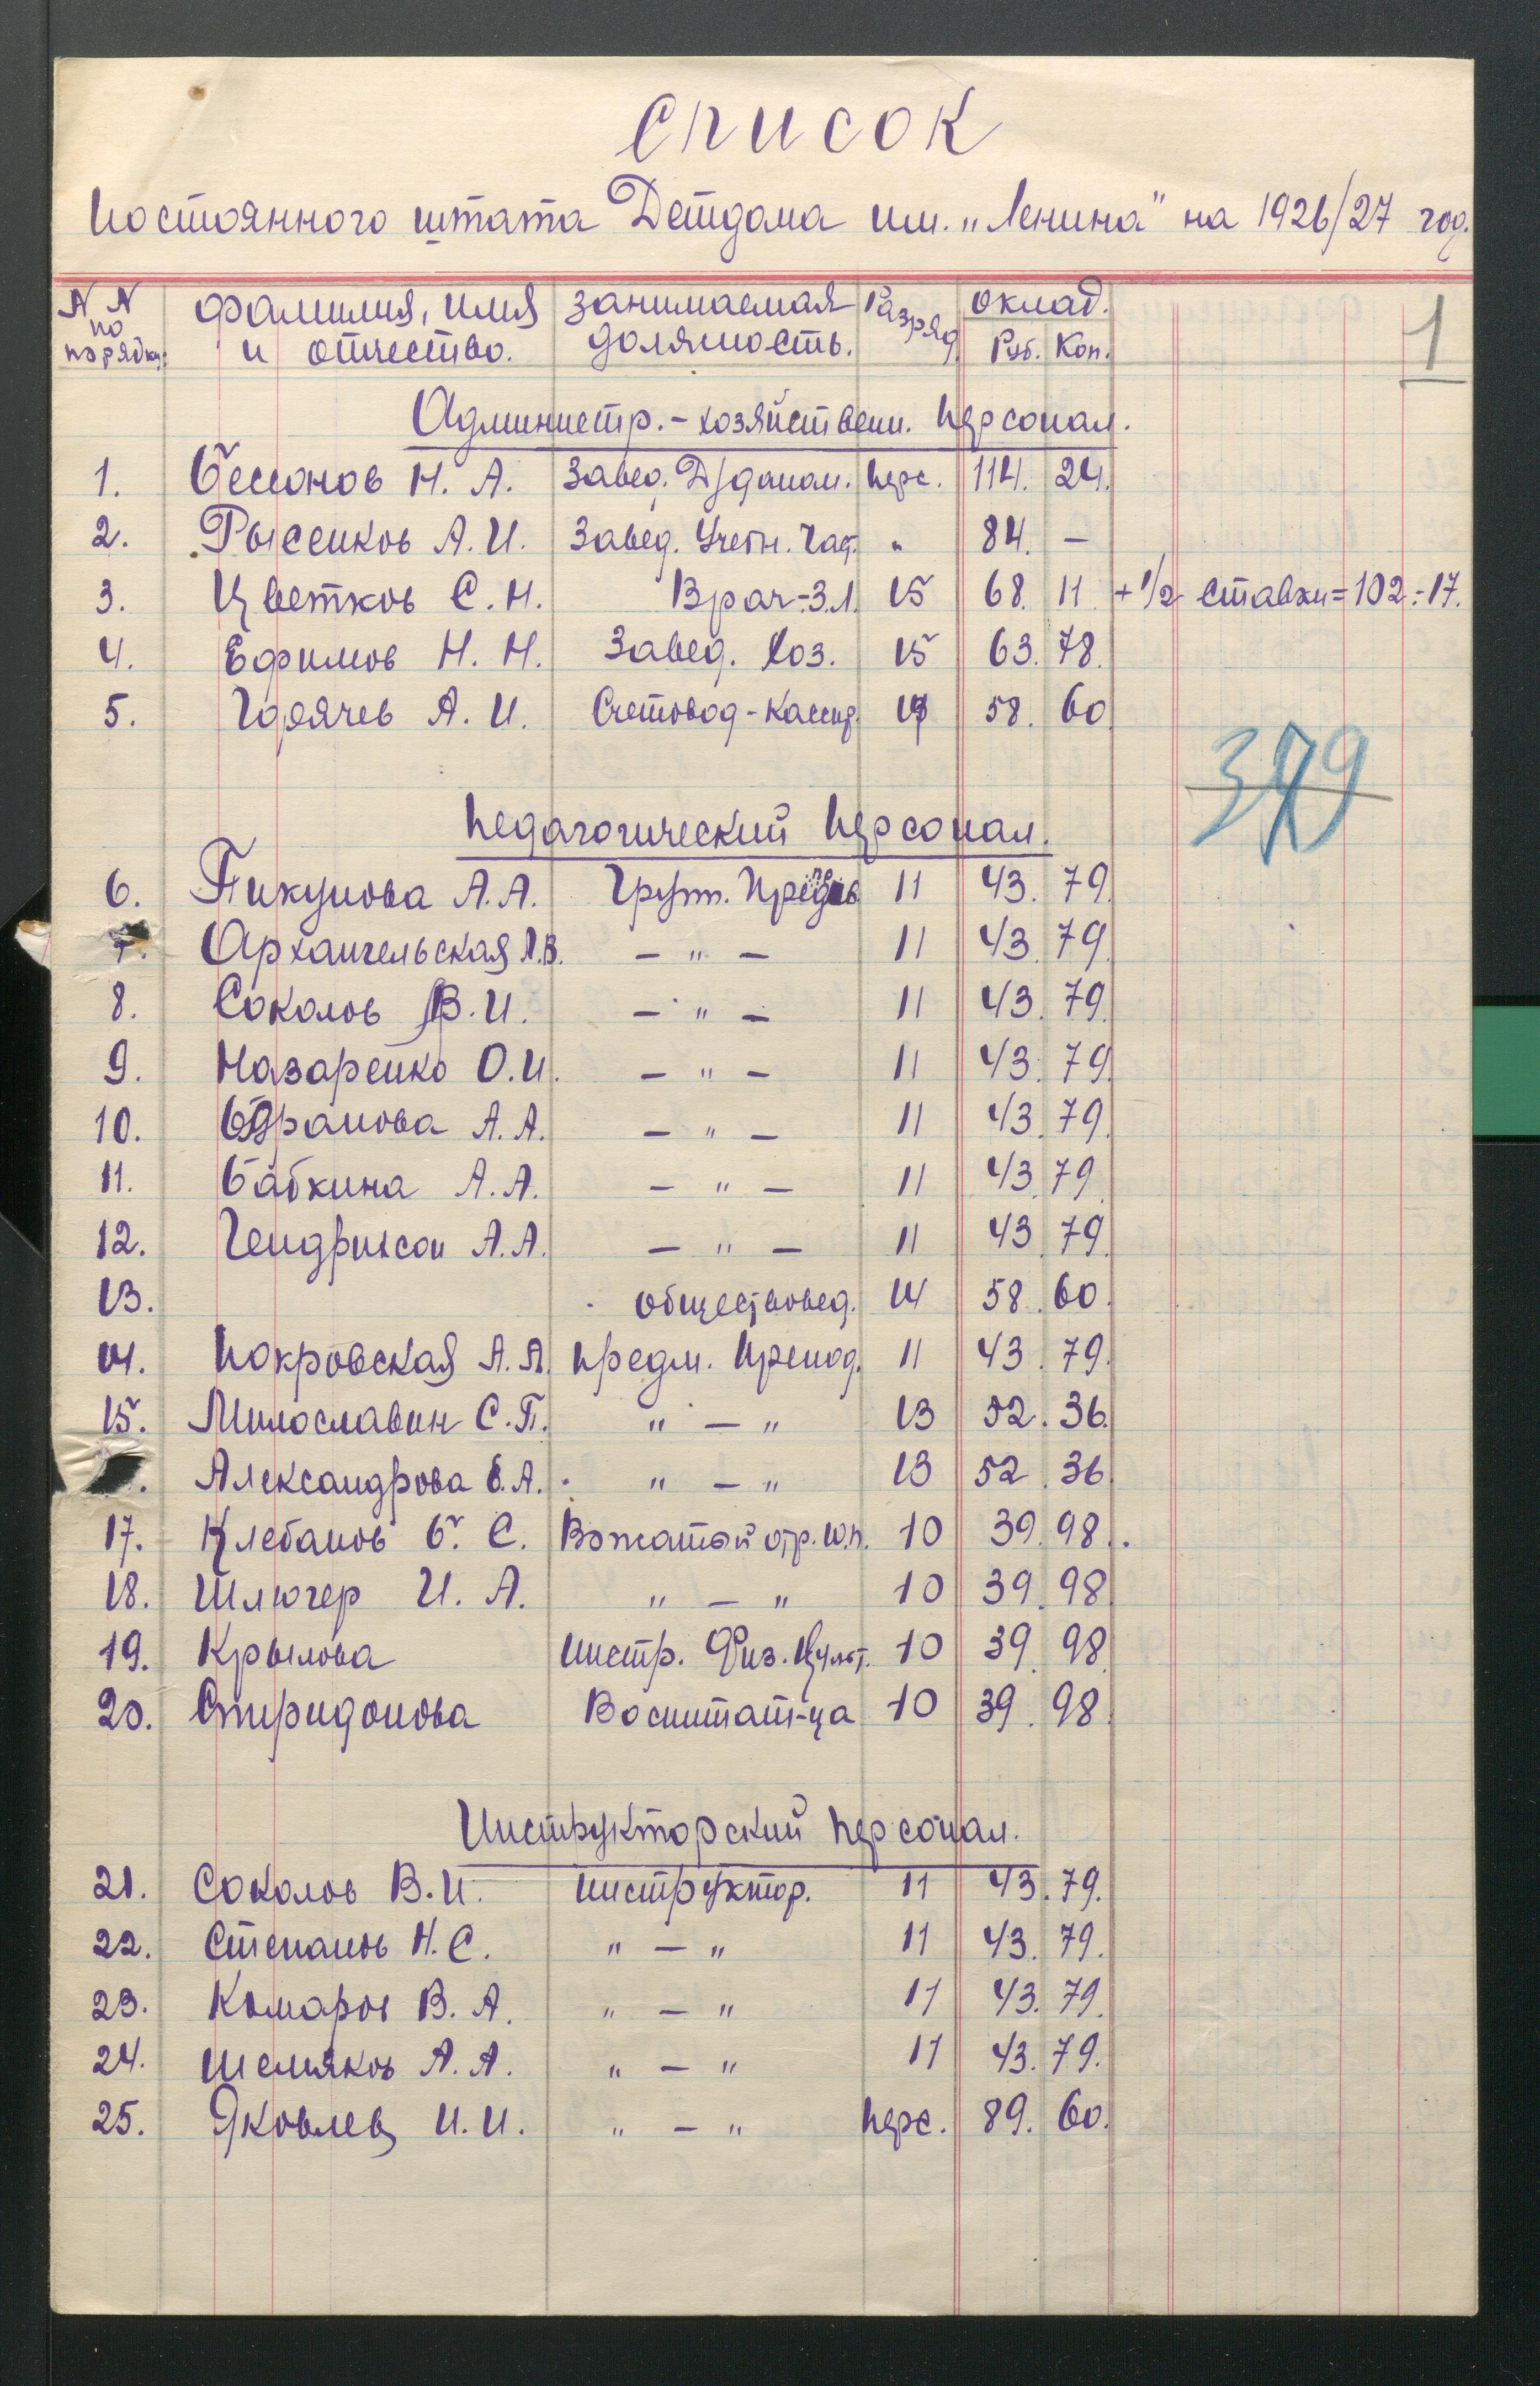 Список
Постоянного штата Детдома им. „Ленина" на 1926/27 год.
N N по порядку. Фамилия, имя и отчество. Занимаемая должность. Разряд Оклад. Руб. Коп.
1
Администр.-хозяйственн. Персонал.
1. Бессонов Н. А. Завед. Д/домом. перс. 114. 24.
2. Рысенков А. И. Завед. Учебн. Част. " 84. —
3. Цветков С. Н. Врач-З.Л. 15 68. 11 + 1/2 ставки=102:-17.
4. Ефимов Н. Н. Завед. Хоз. 15 63. 78.
5. Горячев А. И. Счетовод-Кассир. 58. 60
Педагогический Персонал.
6. Пикунова А. А. Групп. 11 43. 79.
7. Архангельская Л.В. — " — 11 43. 79.
8. Соколов В. И. — " — 11 43. 79.
9. Назаренко О. И. — " — 11 43. 79.
10. А. А. — " — 11 43. 79.
11. Бабкина А. А. — " — 11 43. 79.
12. Гендриксон А. А. — " — 11 43. 79.
13. обществовед. 14 58. 60.
14. Покровская А. А. предм. Препод. 11 43. 79.
15. Милославин С. П. " — " 13 52. 36.
Александрова Е. А. " — " 13 52. 36
17. Клебанов Б. С. Вожатый отр. Ю.п. 10 39. 98.
18. Шлюгер И. А. " — " 10 39. 98
19. Крылова Инстр. Физ. Культ. 10 39. 98
20. Спиридонова Воспитат-ца 10 39. 98.
Инструкторский персонал.
21. Соколов В. И. Инструктор. 11 43. 79.
22. Степанов Н. С. " — " 11 43. 79.
23. Комаров В. А. " — " 11 43. 79.
24. Шемяков А. А. " — " 11 43. 79.
25. Яковлев И. И. " — " перс. 89. 60.